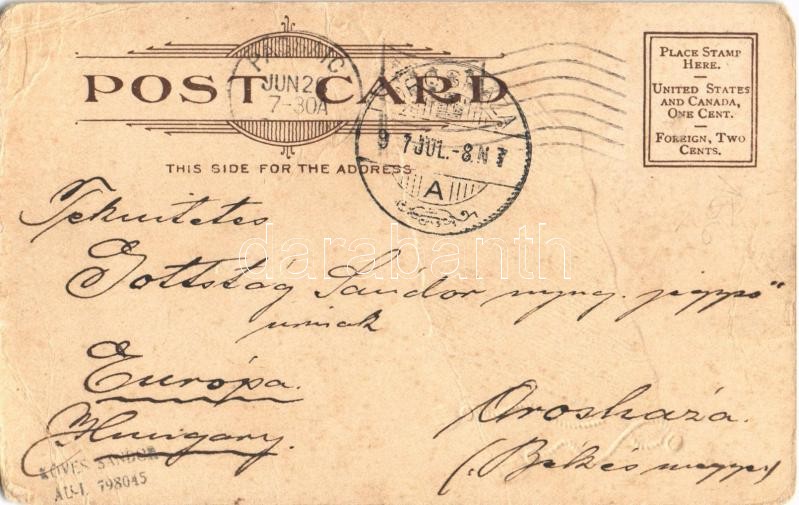 POST CARD
JUN 2
7-30A
9 7 JUL.-8.N
A
THIS SIDE FOR THE ADDRESS
PLACE STAMP
HERE.
UNITED STATES
AND CANADA,
ONE CENT.
FOREIGN, TWO
CENTS.
Sándor
urnak
Európa.
Hungary.
Orosháza.
(Békés megye)
KÖVES SÁNDOR
798045
darabanth